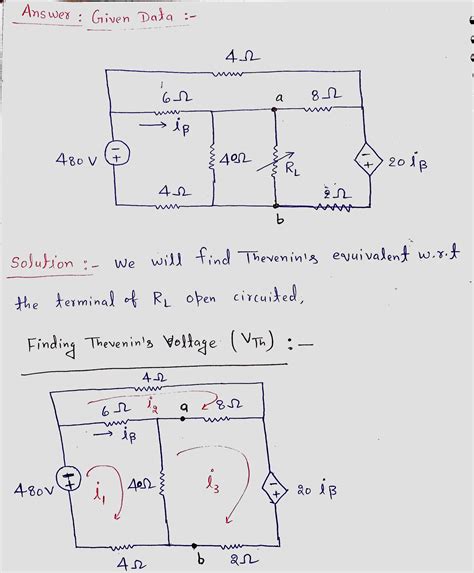 Answer : Given Data :-
4Ω
6Ω
a
8Ω
iβ
480 V
- +
40Ω
RL
- +
20 iβ
4Ω
2Ω
b
Solution :- We will find Thevenin's equivalent w.r.t
the terminal of RL open circuited,
Finding Thevenin's Voltage (VTh) :-
4Ω
6Ω
i2
a
8Ω
iβ
480V
i1
40Ω
i3
- +
20 iβ
4Ω
b
2Ω